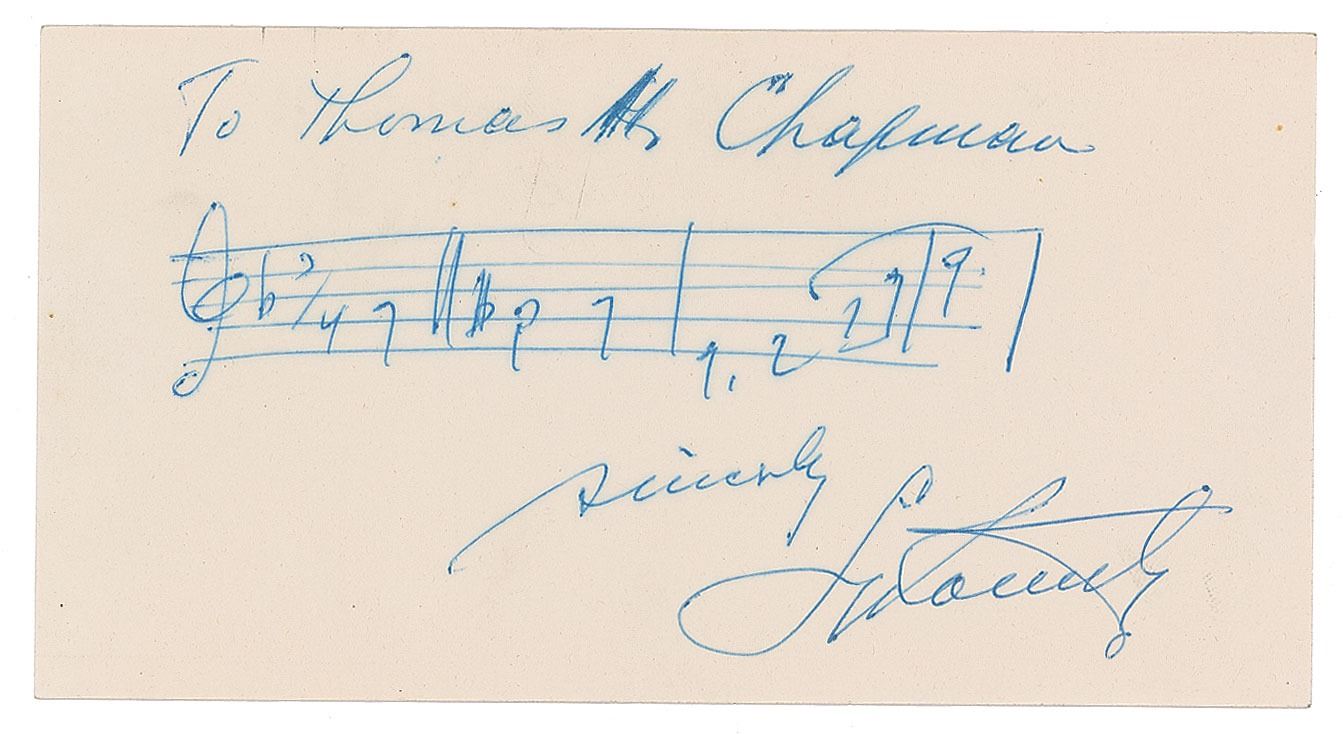 To Thomas H. Chapman
3/4
sincerly